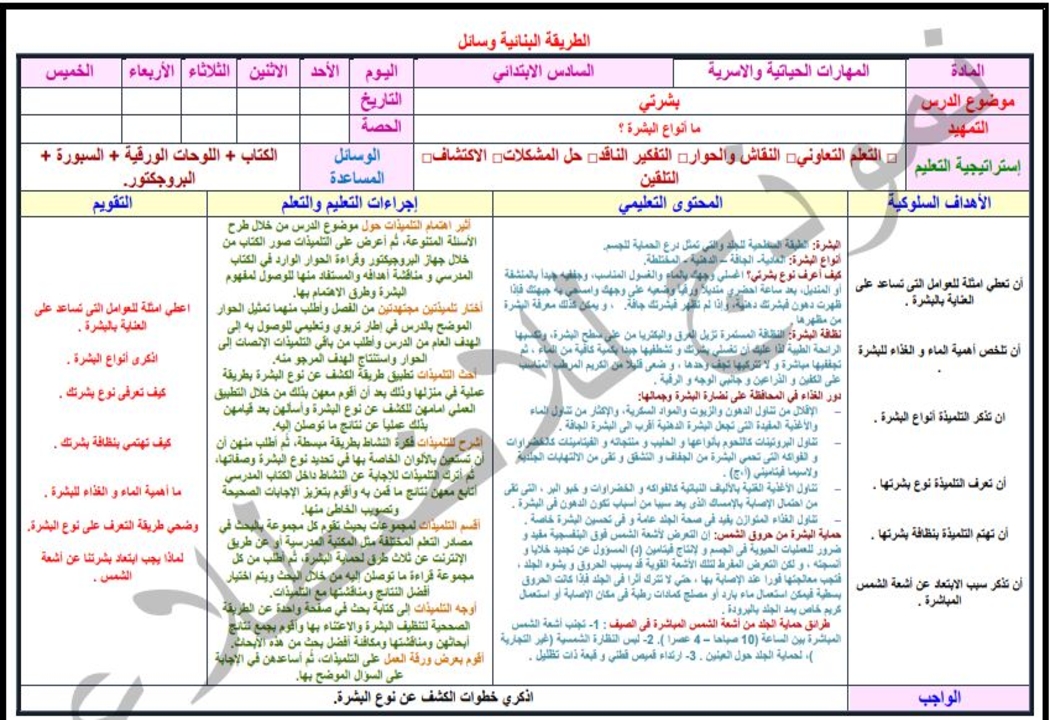 الطريقة البنائية وسائل
المادة المهارات الحياتية والاسرية السادس الابتدائي اليوم الأحد الاثنين الثلاثاء الأربعاء الخميس
موضوع الدرس بشرتي التاريخ
التمهيد ما أنواع البشرة ؟ الحصة
إستراتيجية التعليم □ التعلم التعاوني□ النقاش والحوار□ التفكير الناقد□ حل المشكلات□ الاكتشاف□
التلقين
الوسائل
المساعدة
الكتاب + اللوحات الورقية + السبورة +
البروجكتور.
الأهداف السلوكية المحتوى التعليمي إجراءات التعليم والتعلم التقويم
أن تعطي امثلة للعوامل التى تساعد على
العناية بالبشرة .
أن تلخص أهمية الماء و الغذاء للبشرة
.
ان تذكر التلميذة أنواع البشرة .
أن تعرف التلميذة نوع بشرتها .
أن تهتم التلميذة بنظافة بشرتها .
أن تذكر سبب الابتعاد عن أشعة الشمس
المباشرة .
البشرة: الطبقة السطحية للجلد والتي تمثل درع الحماية للجسم.
أنواع البشرة: العادية- الجافة – الدهنية - المختلطة.
كيف أعرف نوع بشرتي؟ اغسلي وجهك بالماء والغسول المناسب، وجففيه جيداً بالمنشفة
أو المنديل، بعد ساعة احضري منديلاً ورقياً وضعيه على وجهك وامسحي به جبهتك فإذا
ظهرت دهون فبشرتك دهنية، وإذا لم تظهر فبشرتك جافة. ، و يمكن كذلك معرفة البشرة
من مظهرها
نظافة البشرة: النظافة المستمرة تزيل العرق والبكتريا من على سطح البشرة، وتكسبها
الرائحة الطيبة لذا عليك أن تغسلي بشرتك و تشطفيها جيداً بكمية كافية من الماء ، ثم
تجففيها مباشرة و لا تتركيها تجف وحدها ، و ضعى قليلاً من الكريم المرطب المناسب
على الكفين و الذراعين و جانبي الوجه و الرقبة .
دور الغذاء في المحافظة على نضارة البشرة وجمالها:
– الإقلال من تناول الدهون والزيوت والمواد السكرية، والإكثار من تناول الماء
والأغذية المفيدة التى تجعل البشرة الدهنية أقرب الى البشرة الجافة .
– تناول البروتينات كاللحوم بأنواعها و الحليب و منتجاته و الفيتامينات كالخضراوات
و الفواكه التى تحمي البشرة من الجفاف و التشقق و تقى من الالتهابات الجلدية
ولاسيما فيتاميني (أ،ج) .
– تناول الأغذية الغنية بالألياف النباتية كالفواكه و الخضراوات و خبو البر ، التى تقى
من احتمال الإصابة بالإمساك الذى يعد سببا من أسباب تكون الدهون فى البشرة .
– تناول الغذاء المتوازن يفيد فى صحة الجلد عامة و فى تحسين البشرة خاصة .
حماية البشرة من حروق الشمس: إن التعرض لأشعة الشمس فوق البنفسجية مفيد و
ضرور للعمليات الحيوية فى الجسم و لإنتاج فيتامين (د) المسؤول عن تجديد خلايا و
أنسجته ، و لكن التعرض المفرط لتلك الأشعة القوية قد يسبب الحروق و يشوه الجلد ،
فتجب معالجتها فورا عند الإصابة بها ، حتى لا تترك أثرا فى الجلد فإذا كانت الحروق
بسطية فيمكن استعمال ماء بارد أو مصلج كمادات رطبة فى مكان الإصابة أو استعمال
كريم خاص يمد الجلد بالبرودة .
طرائق حماية الجلد من أشعة الشمس المباشرة في الصيف : 1- تجنب أشعة الشمس
المباشرة بين الساعة (10 صباحا – 4 عصرا ). 2- لبس النظارة الشمسية (غير التجارية
)، لحماية الجلد حول العينين . 3- ارتداء قميص قطني و قبعة ذات تظليل .
أثير اهتمام التلميذات حول موضوع الدرس من خلال طرح
الأسئلة المتنوعة، ثُم أعرض على التلميذات صور الكتاب من
خلال جهاز البروجيكتور وقراءة الحوار الوارد في الكتاب
المدرسي و مناقشة أهدافه والمستفاد منها للوصول لمفهوم
البشرة وطرق الاهتمام بها.
أختار تلميذتين مجتهدتين من الفصل وأطلب منهما تمثيل الحوار
الموضح بالدرس في إطار تربوي وتعليمي للوصول به إلى
الهدف العام من الدرس وأطلب من باقي التلميذات الإنصات إلى
الحوار واستنتاج الهدف المرجو منه.
أحث التلميذات تطبيق طريقة الكشف عن نوع البشرة بطريقة
عملية في منزلها وذلك بعد أن أقوم معهن بذلك من خلال التطبيق
العملي امامهن للكشف عن نوع البشرة وأسألهن بعد قيامهن
بذلك عملياً عن نتائج ما توصلن إليه.
أشرح للتلميذات فكرة النشاط بطريقة مبسطة، ثُم أطلب منهن أن
تستعين بالألوان الخاصة بها في تحديد نوع البشرة وصفاتها،
ثُم أترك التلميذات للإجابة عن النشاط داخل الكتاب المدرسي
أتابع معهن نتائج ما قمن به وأقوم بتعزيز الإجابات الصحيحة
وتصويب الخاطئ منها.
أقسم التلميذات لمجموعات بحيث تقوم كل مجموعة بالبحث في
مصادر التعلم المختلفة مثل المكتبة المدرسية أو عن طريق
الإنترنت عن ثلاث طرق لحماية البشرة، ثُم أطلب من كل
مجموعة قراءة ما توصلن إليه من خلال البحث ويتم اختيار
أفضل النتائج ومناقشتها مع التلميذات.
أوجه التلميذات إلى كتابة بحث في صفحة واحدة عن الطريقة
الصحية لتنظيف البشرة والاعتناء بها وأقوم بجمع نتائج
أبحاثهن ومناقشتها ومكافئة أفضل بحث من هذه الأبحاث.
أقوم بعرض ورقة العمل على التلميذات، ثُم أساعدهن في الإجابة
على السؤال الموضح بها.
اعطي امثلة للعوامل التى تساعد على
العناية بالبشرة .
اذكرى أنواع البشرة .
كيف تعرفى نوع بشرتك .
كيف تهتمي بنظافة بشرتك .
ما أهمية الماء و الغذاء للبشرة .
وضحي طريقة التعرف على نوع البشرة.
لماذا يجب ابتعاد بشرتنا عن أشعة
الشمس .
الواجب اذكري خطوات الكشف عن نوع البشرة.
نموذج للاطلاع